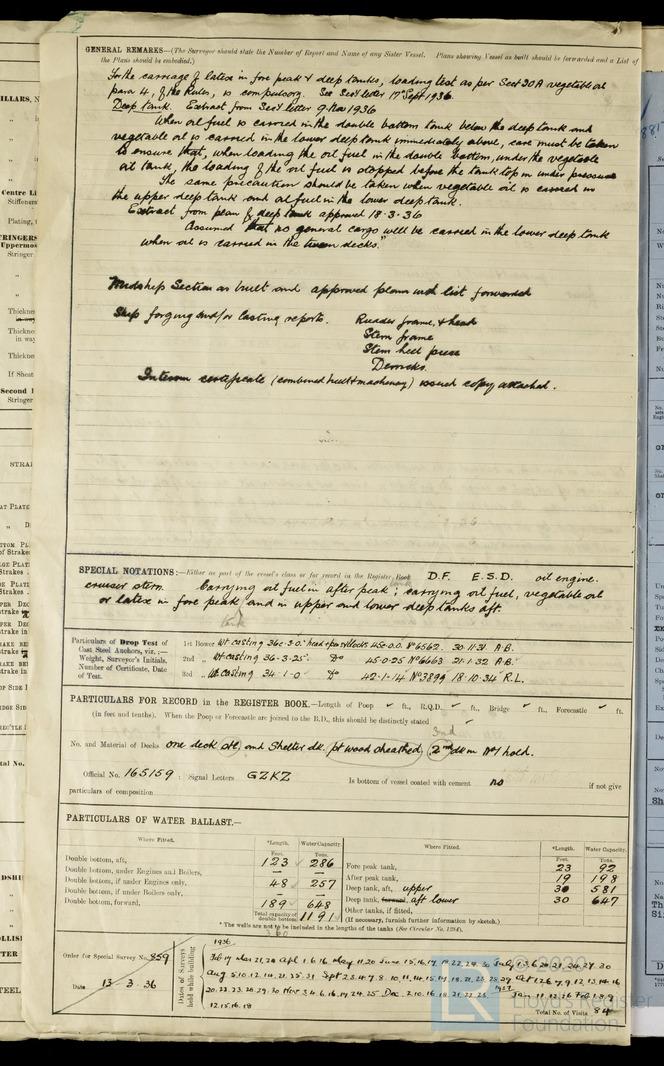 GENERAL REMARKS—(The Surveyor should state the Number of Report and Name of any Sister Vessel. Plans showing Vessel as built should be forwarded and a List of
the Plans should be embodied.)
For the carriage of latex in fore peak & deep tanks, loading test as per Sect 30A vegetable oil
para 4, of the Rules, is compulsory. See Secy letter 17th Sept 1936.
Deep tank. Extract from Secy letter 9 Nov 1936
When oil fuel is carried in the double bottom tank below the deep tank and
vegetable oil is carried in the lower deep tank immediately above, care must be taken
to ensure that, when loading the oil fuel in the double bottom, under the vegetable
oil tank, the loading of the oil fuel is stopped before the tank top is under pressure
The same precaution should be taken when vegetable oil is carried in
the upper deep tank and oil fuel in the lower deep tank.
Extract from plan of deep tank approved 18·3·36
Assumed that no general cargo will be carried in the lower deep tank
when oil is carried in the tween decks."
Midship Section as built and approved plans with list forwarded
Ship forging and/or casting reports. Rudder frame, & head
Stern frame
Stem heel piece
Derricks.
Interim certificate (combined hull & machinery) issued copy attached.
SPECIAL NOTATIONS:—Either as part of the vessel's class or for record in the Register Book D.F. E.S.D. oil engine.
cruiser stern. Carrying oil fuel in after peak; carrying oil fuel, vegetable oil
or latex in fore peak and in upper and lower deep tanks aft.
Particulars of Drop Test of
Cast Steel Anchors, viz.:—
Weight, Surveyor's Initials,
Number of Certificate, Date
of Test.
1st Bower Wt casting 36c·3·0· head & pin & blocks 45c·0·0 No 6562. 30·11·31 A.B.
2nd „ Wt casting 36·3·25· Do 45·0·25 No 6663 21·1·32 A.B.
3rd „ Wt casting 34·1·0 Do 42·1·14 No 3899 18·10·34 R.L.
PARTICULARS FOR RECORD in the REGISTER BOOK.—Length of Poop ✓ ft., R.Q.D. ✓ ft., Bridge ✓ ft., Forecastle ✓ ft.
(in feet and tenths). When the Poop or Forecastle are joined to the B.D., this should be distinctly stated ✓
No. and Material of Decks one deck stl, and Shelter dk. pt wood sheathed, 2nd dk in No 1 hold.
Official No. 165159; Signal Letters GZKZ Is bottom of vessel coated with cement no if not give
particulars of composition
PARTICULARS OF WATER BALLAST.—
Where Fitted. *Length. Water Capacity. Where Fitted. *Length. Water Capacity.
Feet. Tons. Feet. Tons.
Double bottom, aft, 123 286 Fore peak tank, 23 92
Double bottom, under Engines and Boilers, — — After peak tank, 19 198
Double bottom, if under Engines only, 48 257 Deep tank, aft, upper 30 581
Double bottom, if under Boilers only, — — Deep tank, forward, aft lower 30 647
Double bottom, forward, 189 648 Other tanks, if fitted,
Total capacity of double bottom 1191 (If necessary, furnish further information by sketch.)
* The wells are not to be included in the lengths of the tanks (See Circular No. 1284).
Order for Special Survey No. 859
Date 13·3·36
Dates of Surveys held while building
1936
Total No. of Visits 84
© 2020
Lloyd's Register
Foundation